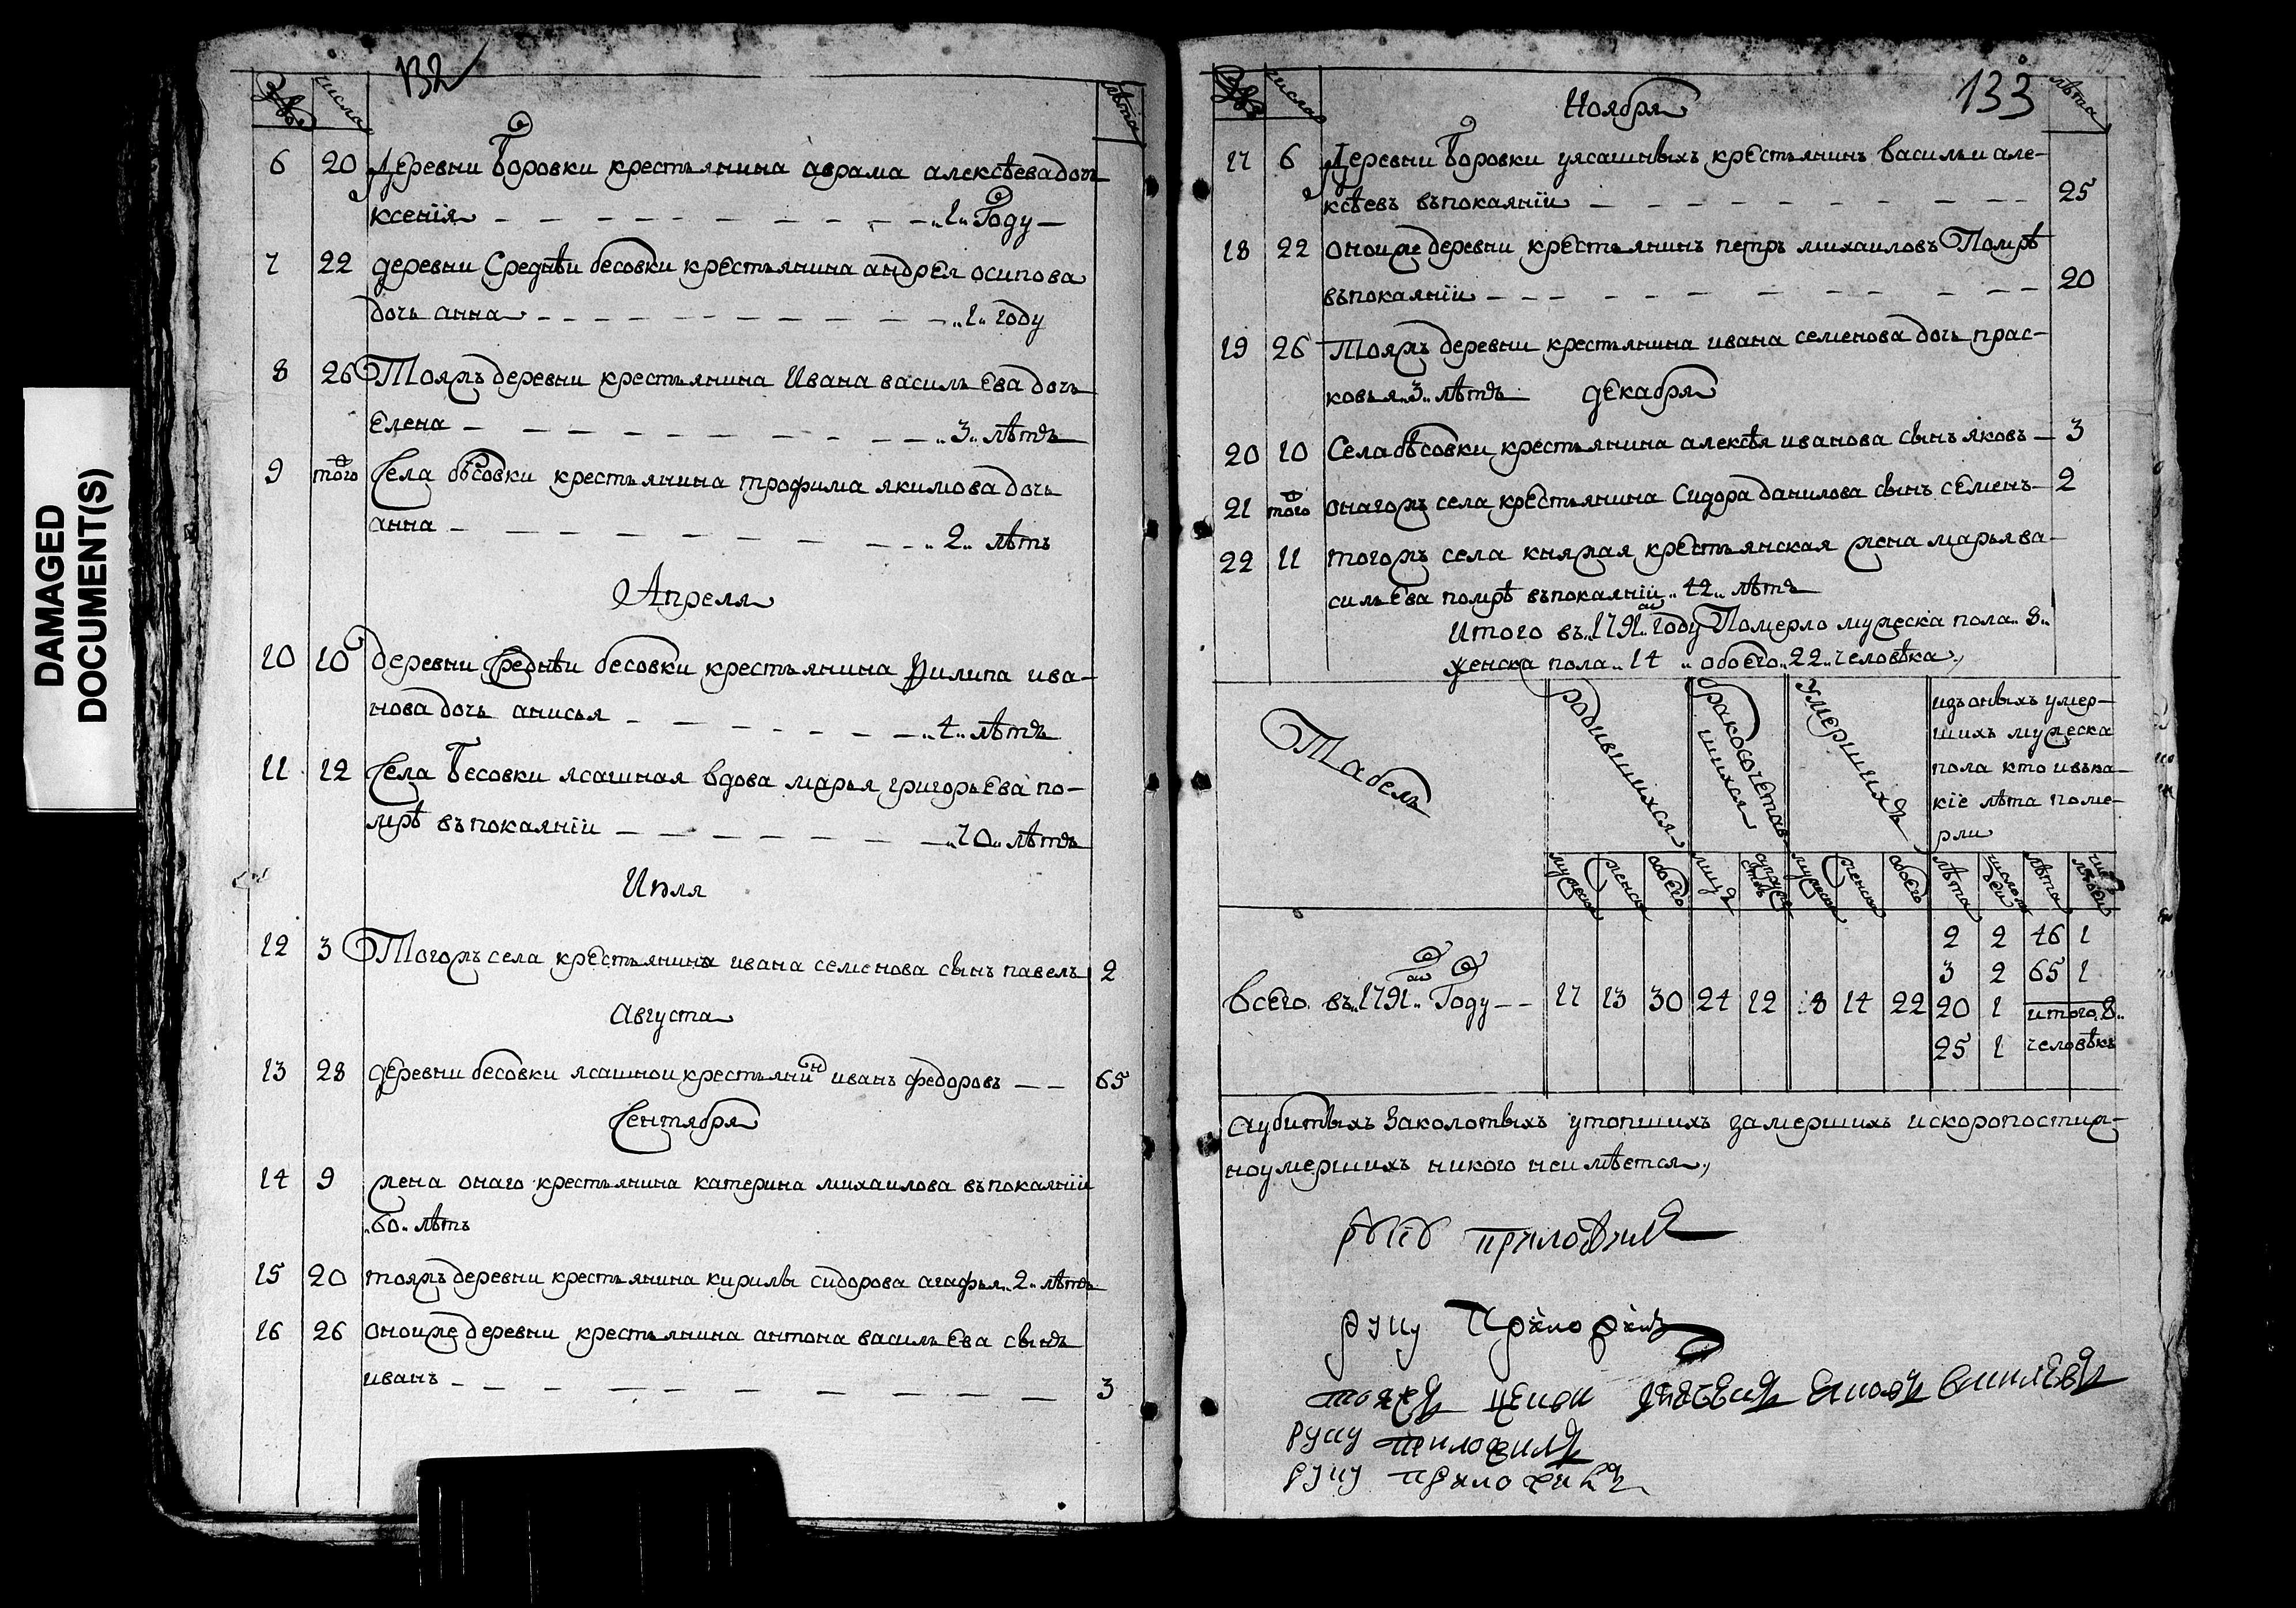 DAMAGED
DOCUMENT(S)
132
числа
лѣта
6 20 Деревни Боровки крестьянина аврама алексѣева дочь
ксенїя — — — — — — — — „1„ Году —
7 22 деревни Средьнѣи бесовки крестьянина андрея осипова
дочь анна — — — — — — — — „1„ году
8 26 Тояжъ деревни крестьянина Ивана васильева дочь
елена — — — — — — — — „3„ лѣтъ
9 того Села бѣсовки крестьянина трофима якимова дочь
анна — — — — — — — — „2„ лѣтъ
Апреля
10 10 деревни Среднѣи бесовки крестьянина Филипа ива-
нова дочь анисья — — — — — — „4„ лѣтъ
11 12 Села Бесовки ясашная вдова марья григорьева по-
мрѣ въ покаянїи — — — — — — „70„ лѣтъ
Июля
12 3 Тогожъ села крестьянина ивана семенова сынъ павелъ 2
Августа
13 28 деревни бесовки ясашнои крестьянинъ иванъ федоровъ — — 65
Сентября
14 9 жена онаго крестьянина катерина михаилова въ покаянїи
„60„ лѣтъ
15 20 тояжъ деревни крестьянина кирилы сидорова агафья „2„ лѣтъ
16 26 оноиже деревни крестьянина антона васильева сынъ
иванъ — — — — — — — — 3
133
числа
лѣта
Ноября
17 6 Деревни Боровки уясашныхъ крестьянинъ василеи але-
ксѣевъ въ покаянїи — — — — — — — — 25
18 22 оноиже деревни крестьянинъ петръ михаиловъ Помрѣ
въ покаянїи — — — — — — — — 20
19 26 Тояжъ деревни крестьянина ивана семенова дочь прас-
ковья „3„ лѣтъ
декабря
20 10 Села бѣсовки крестьянина алексѣя иванова сынъ яковъ — 3
21 того онагожъ села крестьянина Сидора данилова сынъ семенъ — 2
22 11 тогожъ села крестьянская жена марья ва-
сильева помрѣ въ покаянїи „42„ лѣтъ
Итого въ „1791„ году Померло мужеска пола „8„
женска пола „14„ обоего „22„ человѣка
Табель
родившихся
бракосочетав
шихся
умершихъ
изъ оныхъ умер-
шихъ мужеска
пола кто и въ ка-
кїе лѣта поме-
рли
мужеска женска обоего лицъ мужеска женска обоего лѣта лѣта
2 2 46 1
3 2 65 1
всего въ „1791„ Году — — 17 13 30 24 12 8 14 22 20 1 итого „8„
25 1 человѣкъ
а убитыхъ заколотыхъ утопшихъ замершихъ и скоропостиж-
но умершихъ никого не имѣется
приложилъ
руку Приложилъ
тояже церкви
руку приложилъ
руку приложилъ